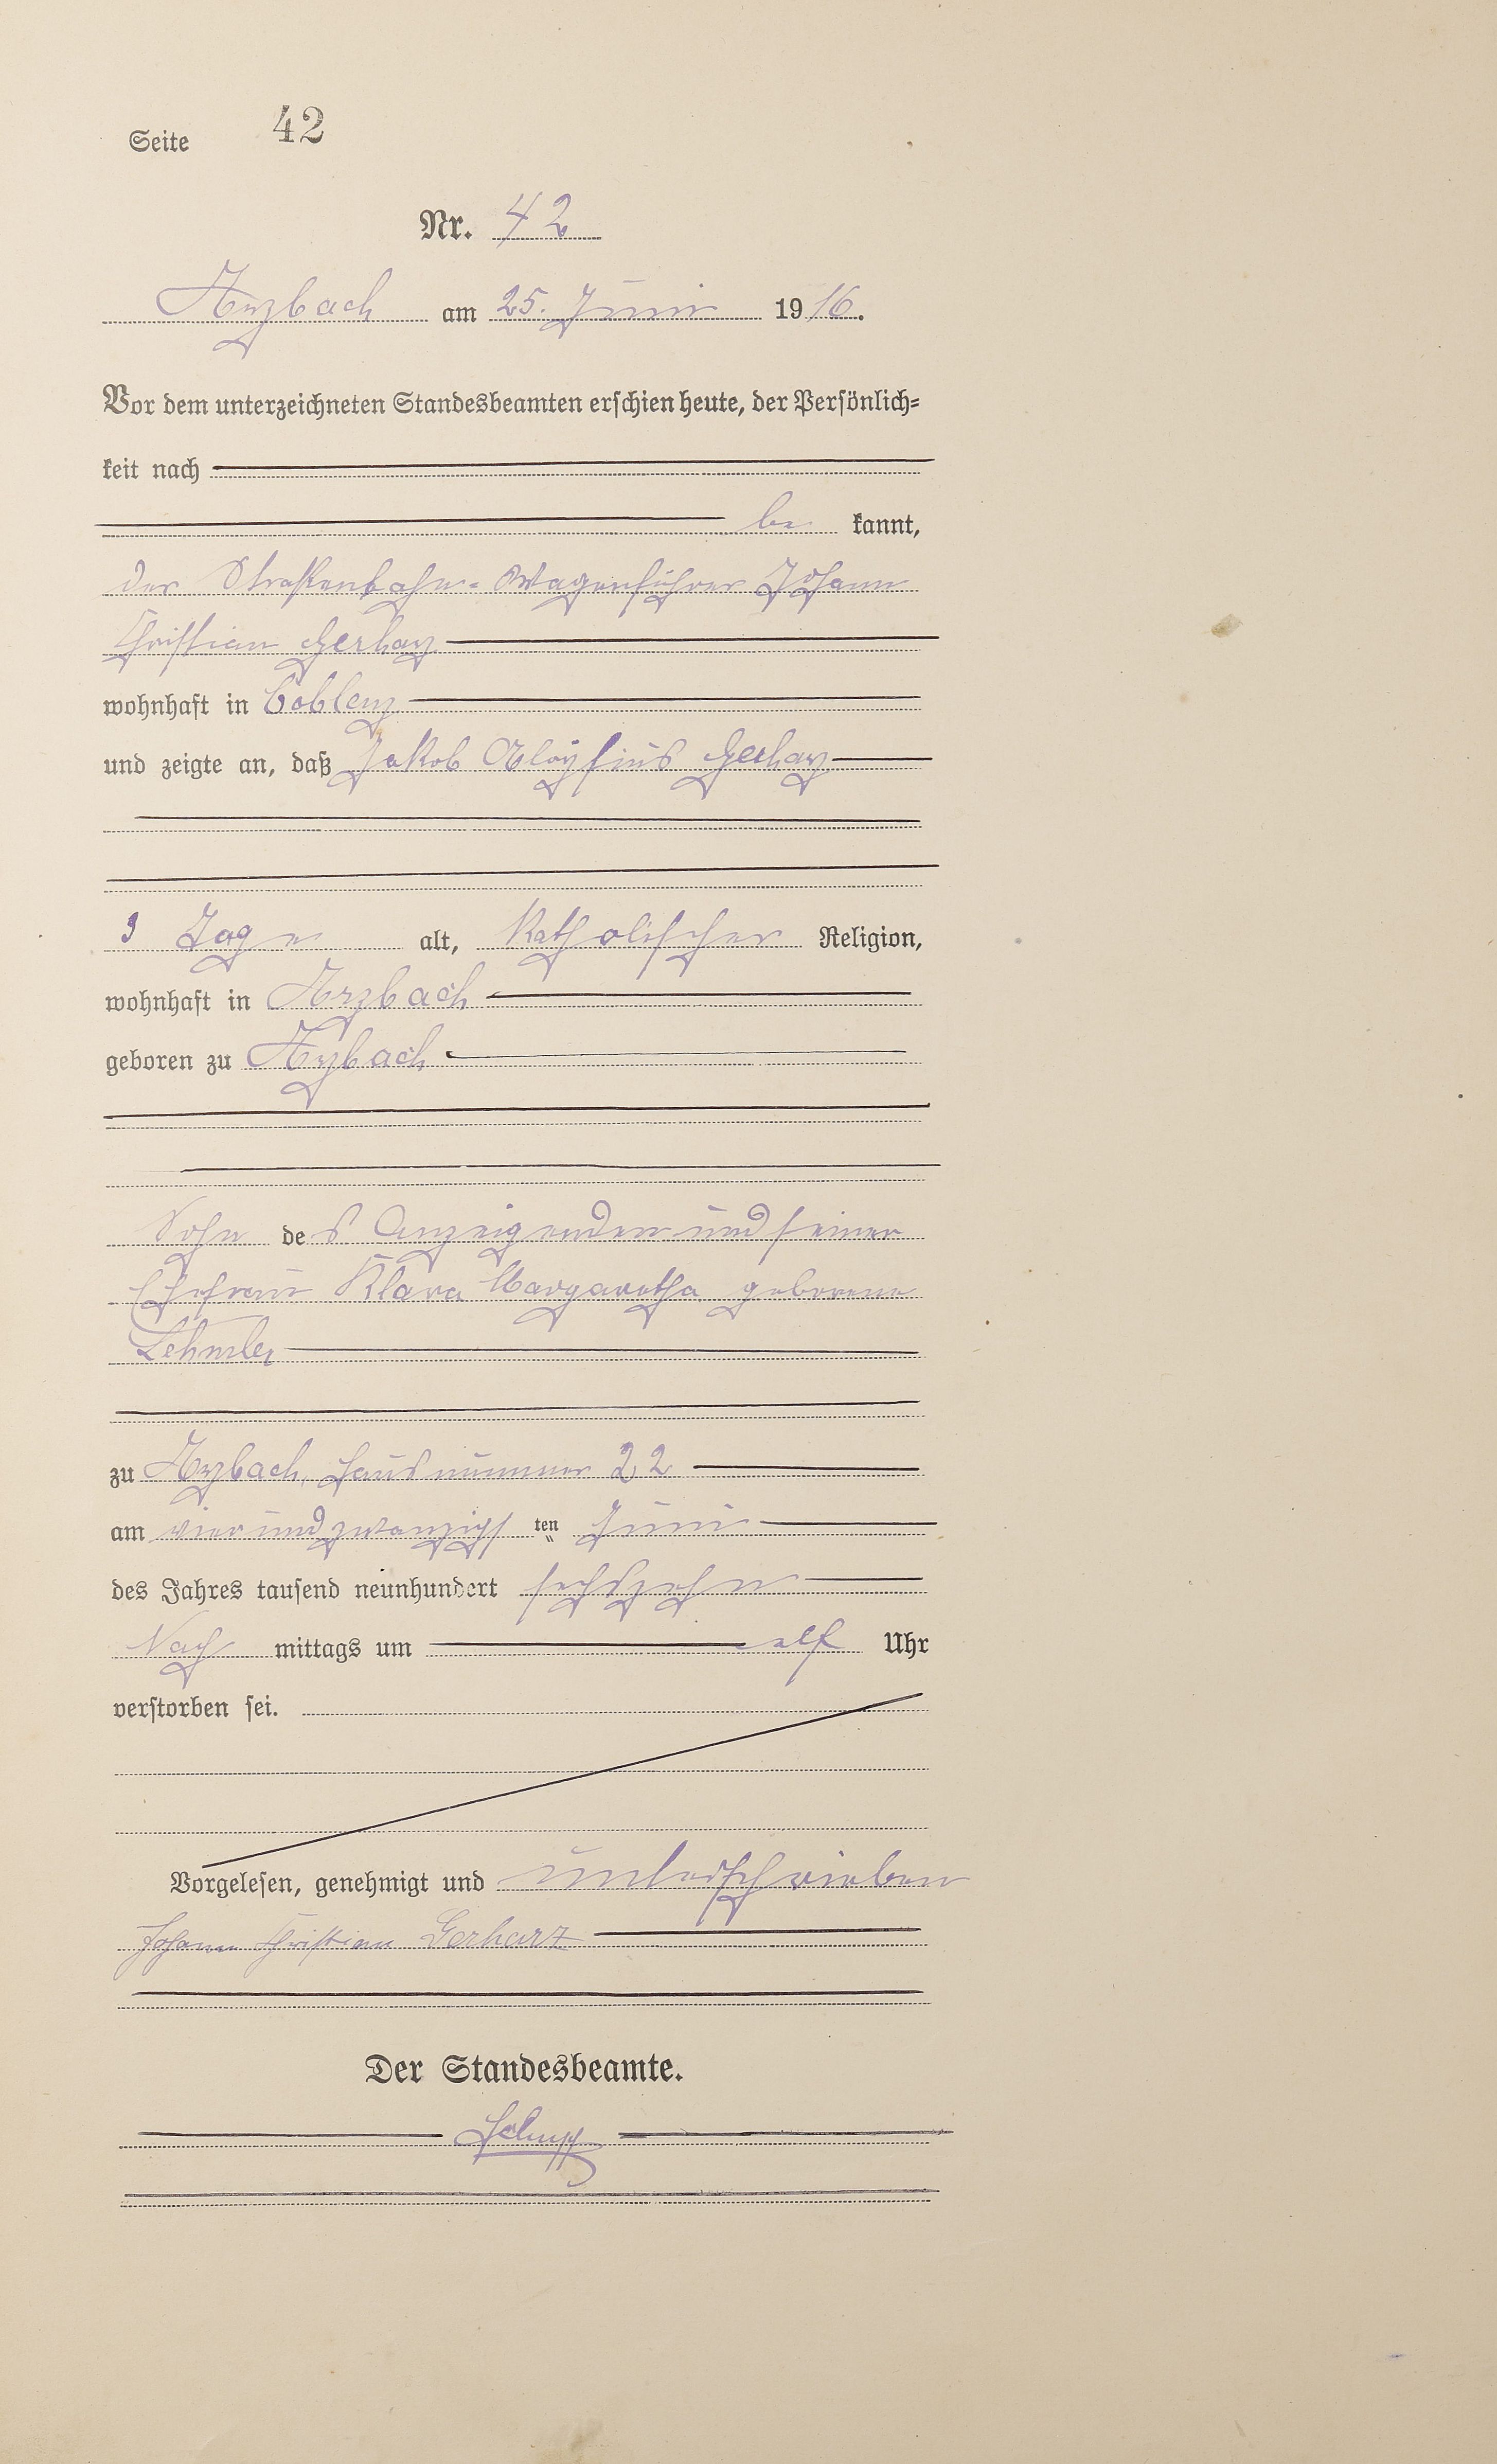 Seite 42
Nr. 42
Arzbach am 25. Juni 1916.
Vor dem unterzeichneten Standesbeamten erschien heute, der Persönlich-
keit nach
be kannt,
der Straßenbahn-Wagenführer Johann
Christian Gerharz
wohnhaft in Coblenz
und zeigte an, daß Jakob Aloysius Gerharz
3 Tage alt, katholischer Religion,
wohnhaft in Arzbach
geboren zu Arzbach
Sohn des Anzeigenden und seiner
Ehefrau Klara Margaretha geborene
zu Arzbach, Hausnummer 22
am vierundzwanzigsten Juni
des Jahres tausend neunhundert sechszehn
Nach mittags um elf Uhr
verstorben sei.
Vorgelesen, genehmigt und unterschrieben
Johann Christian Gerharz
Der Standesbeamte.